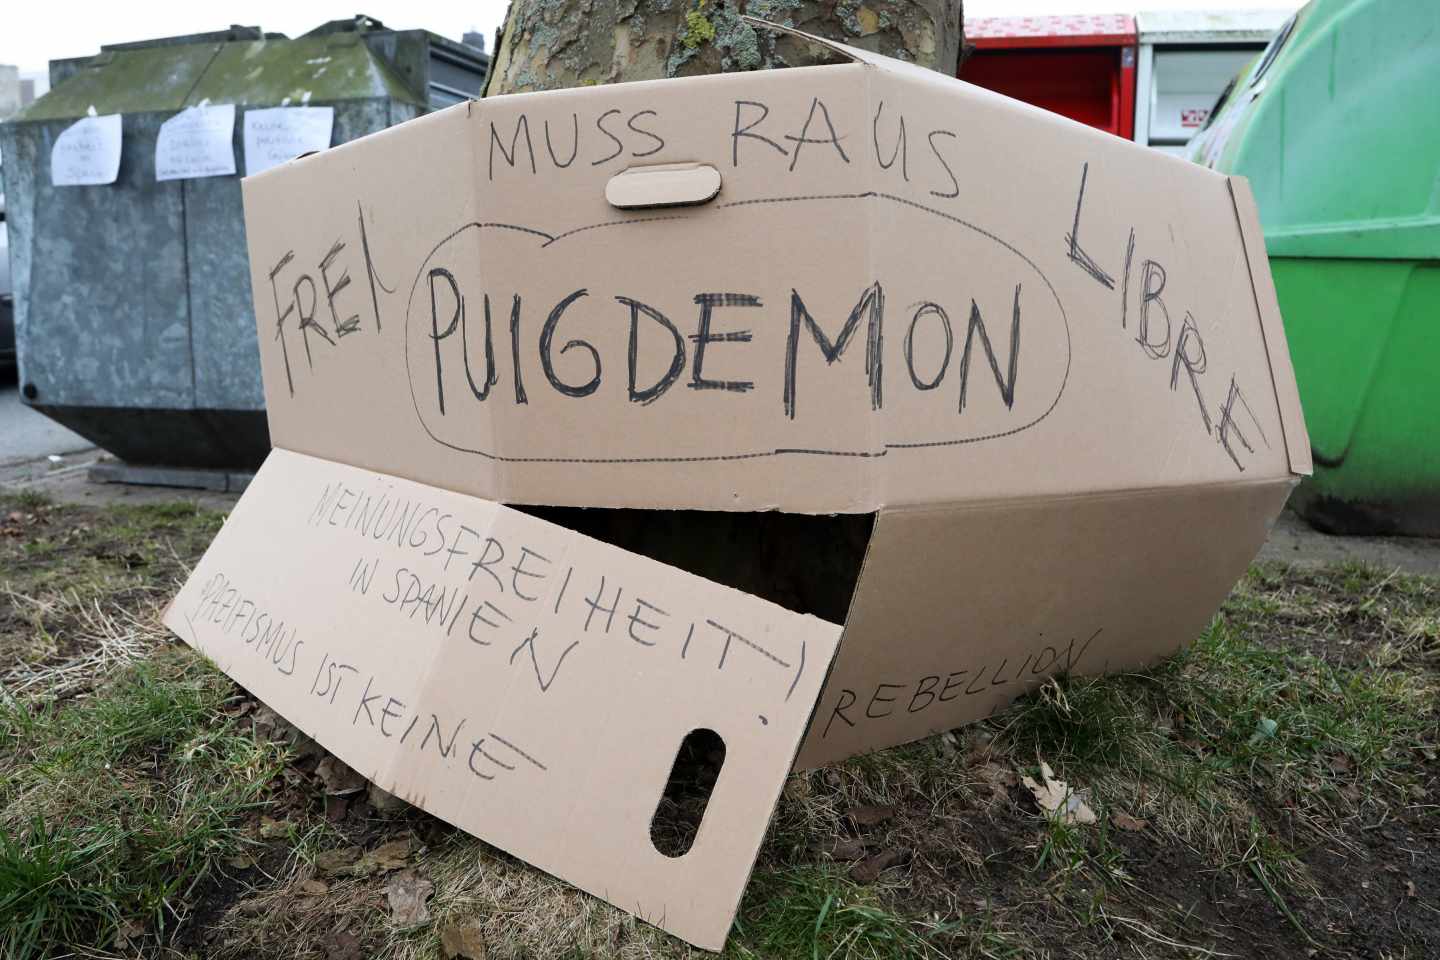 MUSS RAUS
FREI
PUIGDEMON
LIBRE
MEINUNGSFREIHEIT!
IN SPANIEN
PAZIFISMUS IST KEINE
REBELLION